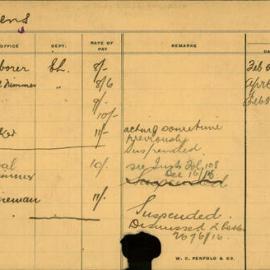 ens
OFFICE DEPT. RATE OF PAY REMARKS
borer Ch. 8/- Feb
Trimmer 8/6 Apr
9/- Feb 8
10/-
11/- acting sometime
previously
Suspended
10/- see Fol. 108
Dec 16/16
Suspended
ireman 11/-
Suspended.
Dismissed
20/6/16.
W. C. PENFOLD & CO.